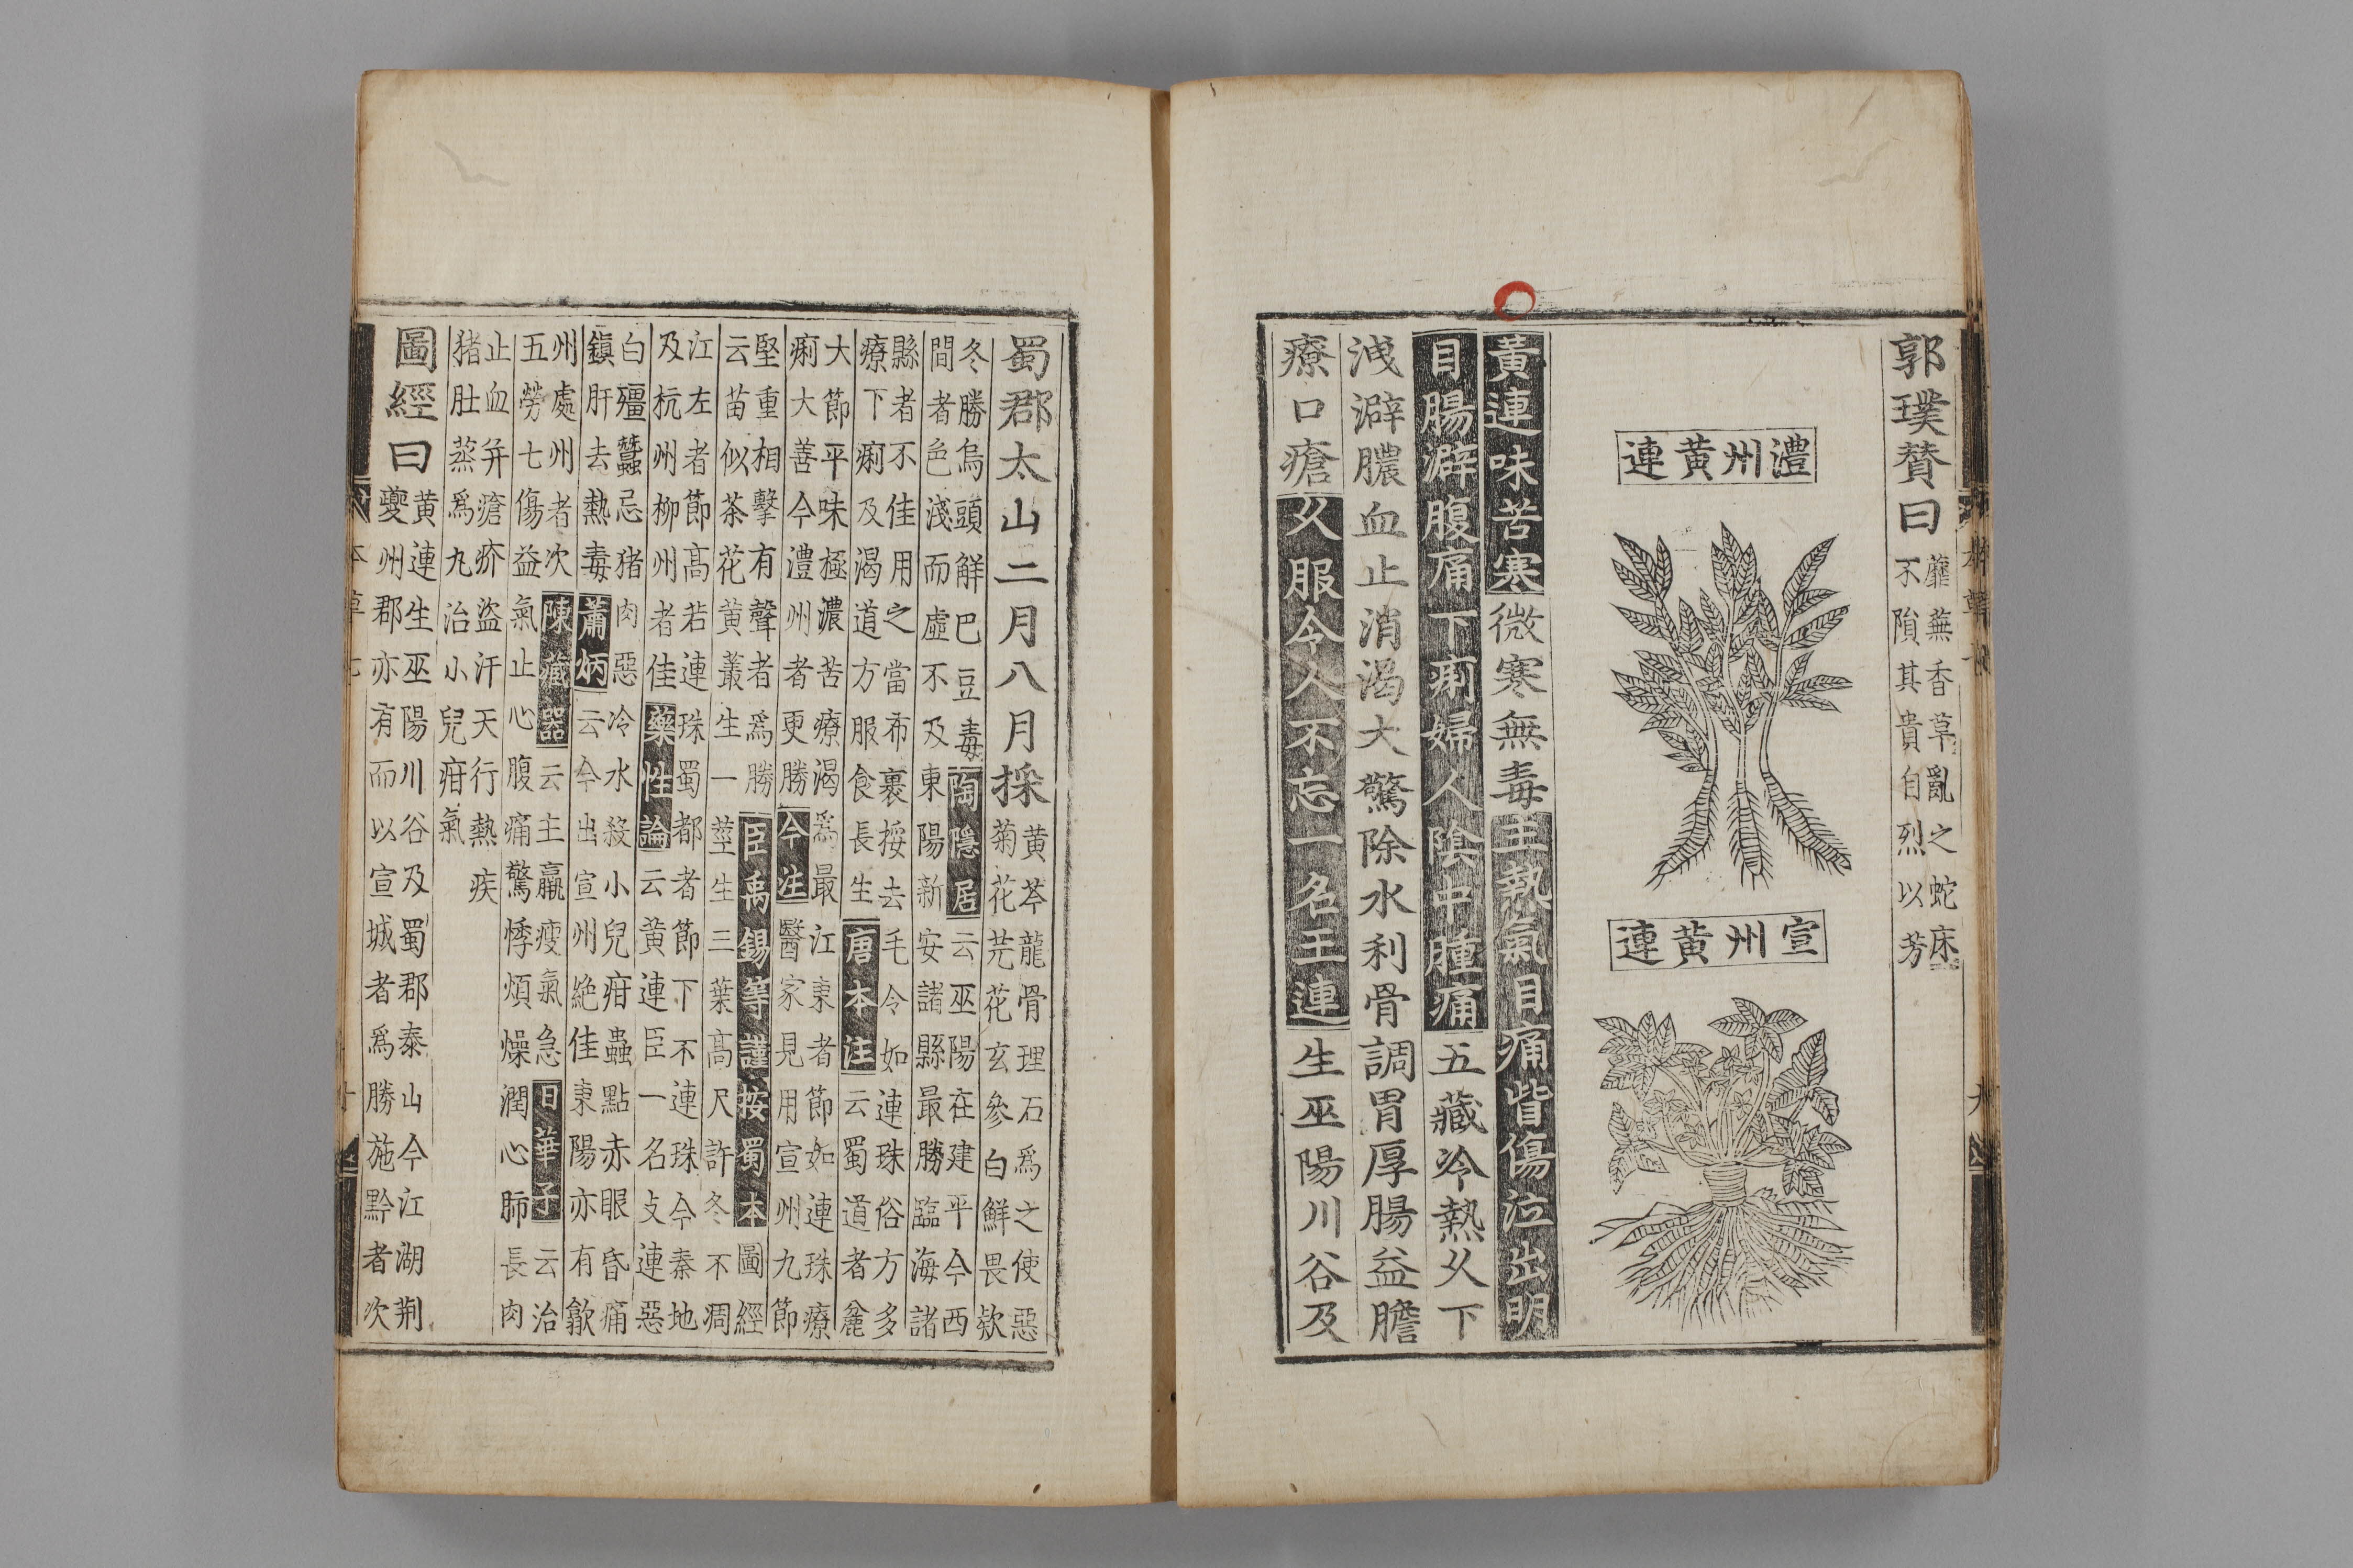 郭璞贊曰蘼蕪香草亂之蛇床
不隕其貴自烈以芳
澧州黃連
宣州黃連
黃連味苦寒微寒無毒主熱氣目痛眥傷泣出明
目腸澼腹痛下痢婦人陰中腫痛五藏冷熱久下
洩澼膿血止消渴大驚除水利骨調胃厚腸益膽
療口瘡久服令人不忘一名王連生巫陽川谷及
蜀郡太山二月八月採黃芩龍骨理石爲之使惡
菊花芫花玄參白鮮畏欵
冬勝烏頭解巴豆毒陶隱居云巫陽在建平今西
間者色淺而虛不及東陽新安諸縣最勝臨海諸
縣者不佳用之當布裹挼去毛令如連珠俗方多
療下痢及渴道方服食長生唐本注云蜀道者麄
大節平味極濃苦療渴爲最江東者節如連珠療
痢大善今澧州者更勝今注醫家見用宣州九節
堅重相擊有聲者爲勝臣禹錫等謹按蜀本圖經
云苗似茶花黃叢生一莖生三葉高尺許冬不凋
江左者節高若連珠蜀都者節下不連珠今秦地
及杭州柳州者佳藥性論云黃連臣一名支連惡
白殭蠶忌猪肉惡冷水殺小兒疳蟲點赤眼昏痛
鎮肝去熱毒蕭炳云今出宣州絶佳東陽亦有歙
州處州者次陳藏器云主羸瘦氣急日華子云治
五勞七傷益氣止心腹痛驚悸煩燥潤心肺長肉
止血并瘡疥盜汗天行熱疾
猪肚蒸爲丸治小兒疳氣
圖經曰黃連生巫陽川谷及蜀郡泰山今江湖荆
夔州郡亦有而以宣城者爲勝施黔者次